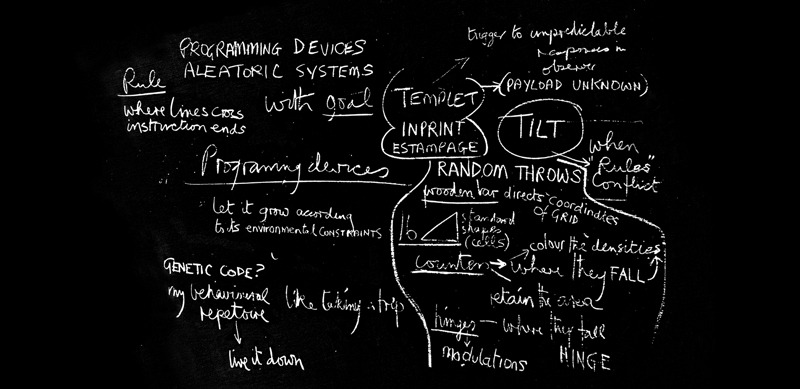 PROGRAMMING DEVICES
ALEATORIC SYSTEMS
with goal
Rule
where lines cross
instruction ends
Programing devices
let it grow according
to its environmental CONSTRAINTS
GENETIC CODE?
my behavioural
repetoire
like taking a trip
live it down
trigger to unpredictable
responses in
observer
(PAYLOAD UNKNOWN)
TEMPLET
INPRINT
ESTAMPAGE
TILT
when
"Rules"
Conflict
RANDOM THROWS
wooden bar directs coordinates
of GRID
standard
shapes
(cells)
colour the densities
counters → where they FALL
retain the area
hinges — where they fall
HINGE
modulations